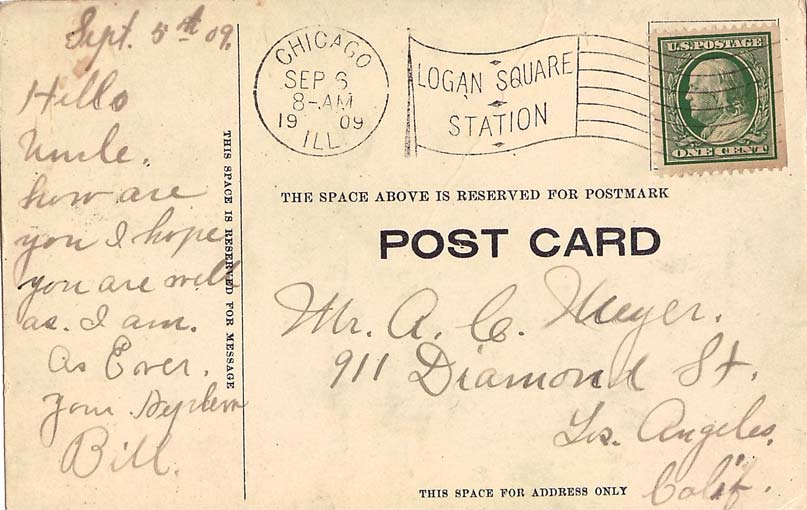 Sept. 5th 09.
Hello
Uncle.
how are
you I hope
you are well
as. I am.
As Ever.
Your
Bill.
THIS SPACE IS RESERVED FOR MESSAGE
CHICAGO
SEP 6
8-AM
19 09
ILL
LOGAN SQUARE
STATION
U.S. POSTAGE
ONE CENT
THE SPACE ABOVE IS RESERVED FOR POSTMARK
POST CARD
Mr. A. C. Meyer.
911 Diamond St.
Los. Angeles.
Calif.
THIS SPACE FOR ADDRESS ONLY